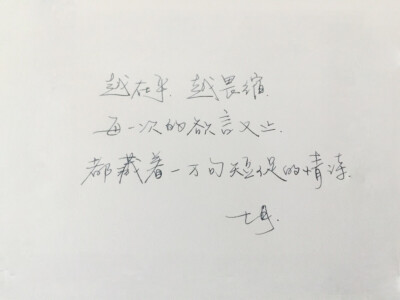 越在乎.越畏缩.
每一次的欲言又止.
都藏着一万句短促的情诗.